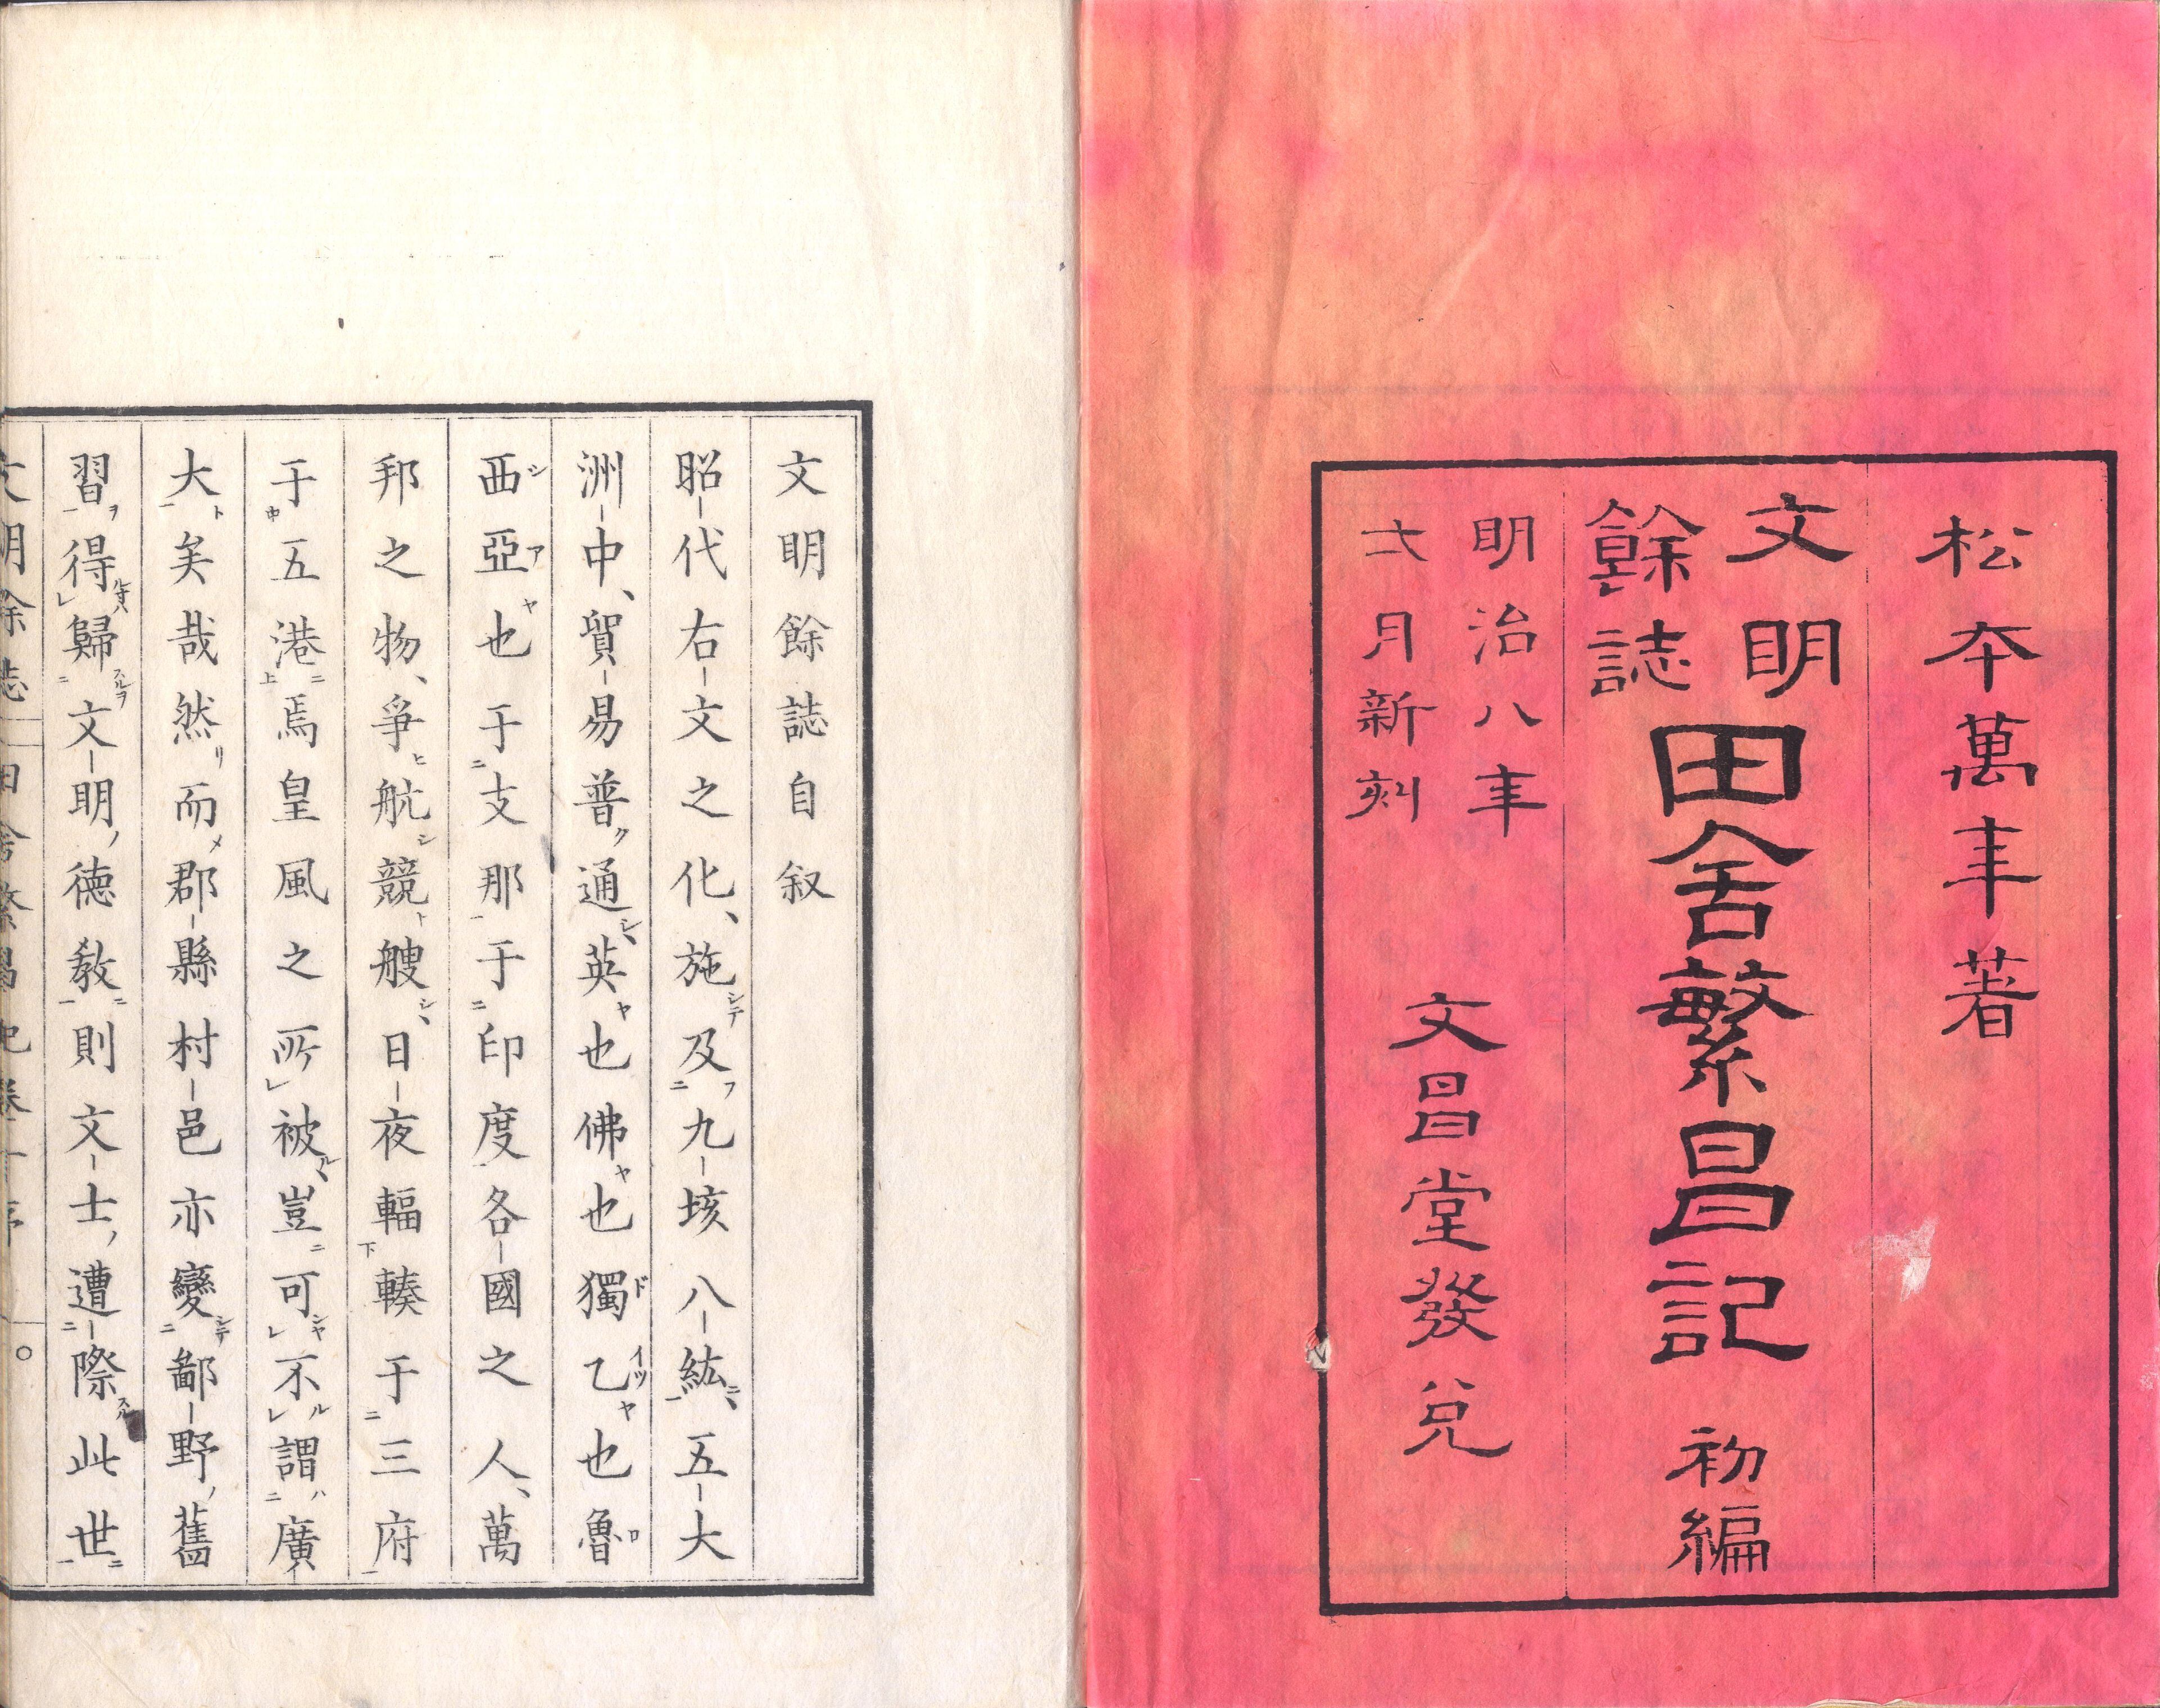 松本萬年著
文明
餘誌
田舎繁昌記 初編
明治八年
弍月新刻
文昌堂發兌
文明餘誌自叙
昭代右文之化、施及九垓八紘、五大
洲中、貿易普通、英也佛也獨乙也魯
西亞也于支那于印度各國之人、萬
邦之物、爭航競艘、日夜輻輳于三府
于五港焉皇風之所被、豈可不謂廣
大矣哉然而郡縣村邑亦變鄙野舊
習得歸文明德教則文士遭際此世